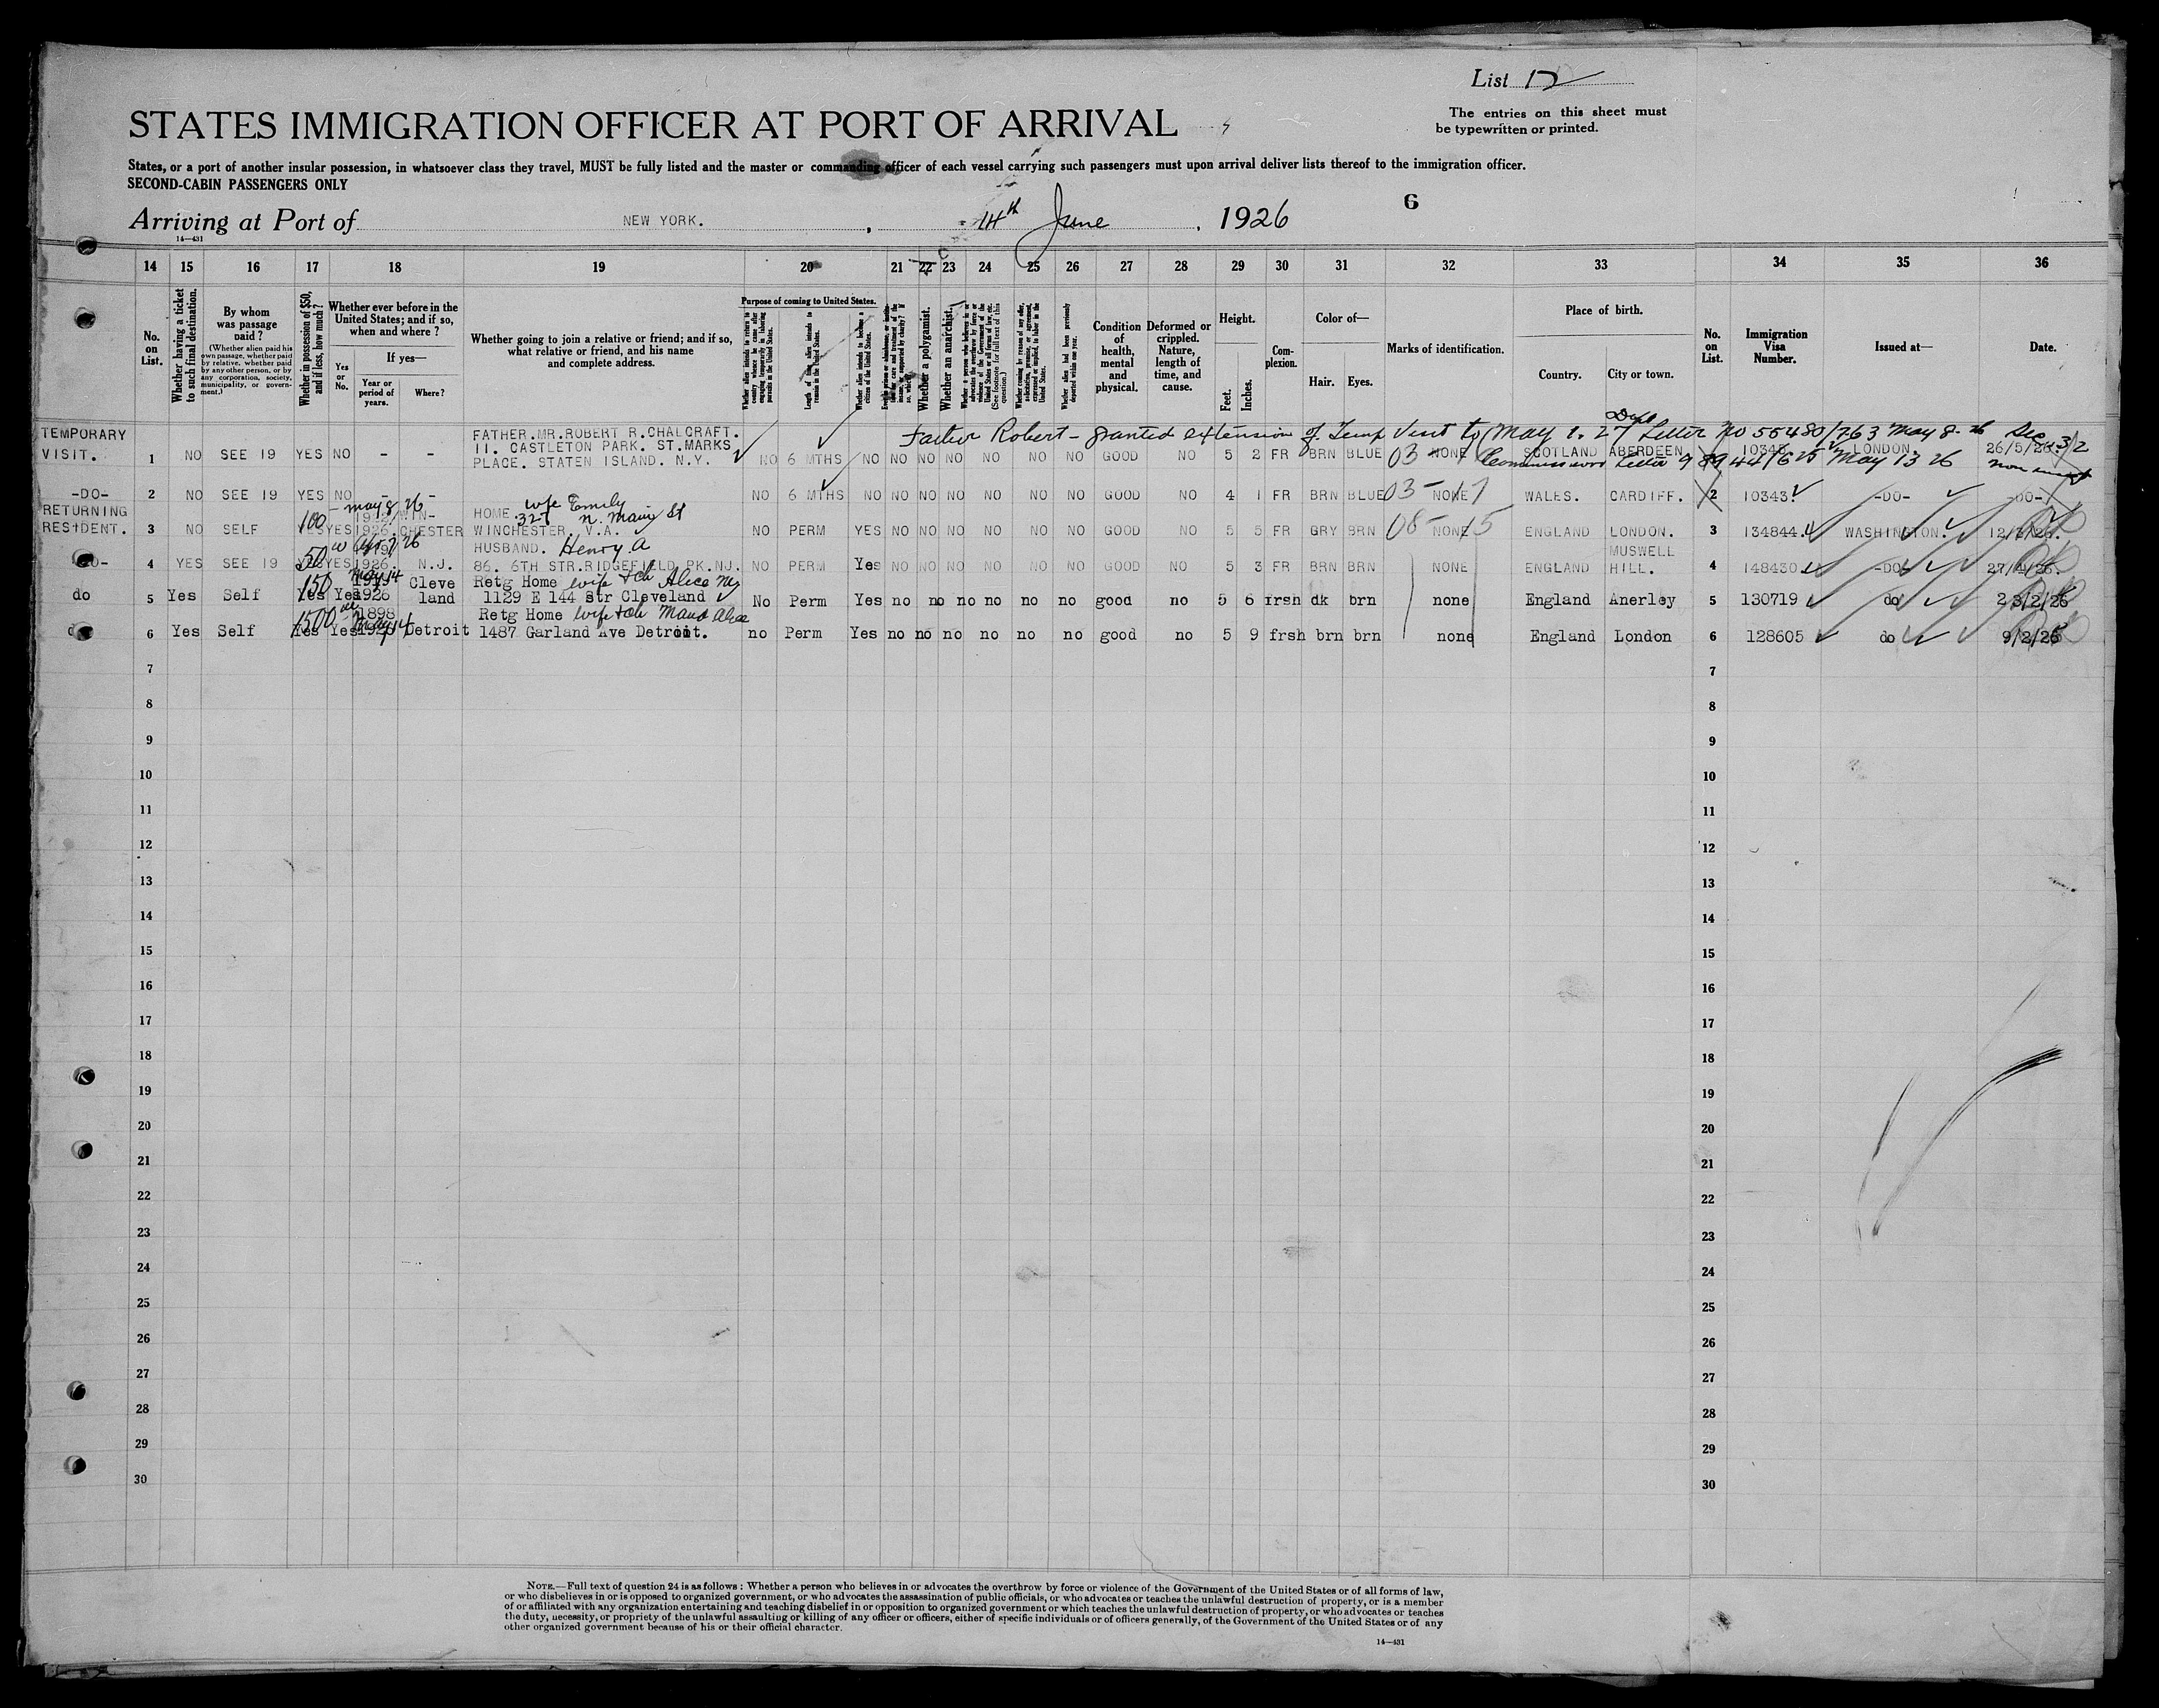 List 12
STATES IMMIGRATION OFFICER AT PORT OF ARRIVAL
The entries on this sheet must
be typewritten or printed.
States, or a port of another insular possession, in whatsoever class they travel, MUST be fully listed and the master or commanding officer of each vessel carrying such passengers must upon arrival deliver lists thereof to the immigration officer.
SECOND-CABIN PASSENGERS ONLY
6
Arriving at Port of NEW YORK. , 14th June , 1926
14—431
14 15 16 17 18 19 20 21 22 23 24 25 26 27 28 29 30 31 32 33 34 35 36
No. on List.
Whether having a ticket to such final destination.
By whom was passage paid?
(Whether alien paid his own passage, whether paid by relative, whether paid by any other person, or by any corporation, society, municipality, or government.)
Whether in possession of $50, and if less, how much?
Whether ever before in the United States; and if so, when and where?
Yes or No.
If yes—
Year or period of years.
Where?
Whether going to join a relative or friend; and if so, what relative or friend, and his name and complete address.
Purpose of coming to United States.
Whether alien intends to return to country whence he came after engaging temporarily in laboring pursuits in the United States.
Length of time alien intends to remain in the United States.
Whether alien intends to become a citizen of the United States.
Whether a polygamist.
Whether an anarchist.
Condition of health, mental and physical.
Deformed or crippled. Nature, length of time, and cause.
Height.
Feet.
Inches.
Complexion.
Color of—
Hair.
Eyes.
Marks of identification.
Place of birth.
Country.
City or town.
No. on List.
Immigration Visa Number.
Issued at—
Date.
Father Robert - granted extension of Temp Visit to May 1. 27 Dept Letter No 55480/763 May 8-26
Commissioner Letter 98944/625 May 13 26
TEMPORARY VISIT. 1 NO SEE 19 YES NO - - FATHER.MR.ROBERT R.CHALCRAFT. 11. CASTLETON PARK. ST.MARKS PLACE. STATEN ISLAND. N.Y. NO 6 MTHS NO NO NO NO NO NO NO GOOD NO 5 2 FR BRN BLUE NONE SCOTLAND ABERDEEN LONDON. 26/5/26.
-DO- 2 NO SEE 19 YES NO - - NO 6 MTHS NO NO NO NO NO NO NO GOOD NO 4 1 FR BRN BLUE NONE WALES. CARDIFF. 2 10343 -DO- -DO-
RETURNING RESIDENT. 3 NO SELF 100 YES YES May 8/26 1926 WINCHESTER HOME. wife Emily 327 N. Main St WINCHESTER. V.A. NO PERM YES NO NO NO NO NO NO GOOD NO 5 5 FR GRY BRN NONE ENGLAND LONDON. 3 134844. WASHINGTON.
-DO- 4 YES SEE 19 50 YES 1926. N.J. HUSBAND. Henry A 86. 6TH STR.RIDGEFIELD PK.NJ. NO PERM Yes NO NO NO NO NO NO GOOD NO 5 3 FR BRN BRN NONE ENGLAND MUSWELL HILL. 4 148430 -DO- 27/4/26.
do 5 Yes Self 150 Yes Yes May 14 1926 Cleveland Retg Home wife + ch Alice M 1129 E 144 Str Cleveland No Perm Yes no no no no no no good no 5 6 frsh dk brn none England Anerley 5 130719 do
6 Yes Self 1500 Yes Yes 1898 May 14 Detroit Retg Home wife + ch Maud Alice 1487 Garland Ave Detroit. no Perm Yes no no no no no no good no 5 9 frsh brn brn none England London 6 128605 do 9/2/26
7 7
8 8
9 9
10 10
11 11
12 12
13 13
14 14
15 15
16 16
17 17
18 18
19 19
20 20
21 21
22 22
23 23
24 24
25 25
26 26
27 27
28 28
29 29
30 30
NOTE.—Full text of question 24 is as follows: Whether a person who believes in or advocates the overthrow by force or violence of the Government of the United States or of all forms of law,
or who disbelieves in or is opposed to organized government, or who advocates the assassination of public officials, or who advocates or teaches the unlawful destruction of property, or is a member
of or affiliated with any organization entertaining and teaching disbelief in or opposition to organized government or which teaches the unlawful destruction of property, or who advocates or teaches
the duty, necessity, or propriety of the unlawful assaulting or killing of any officer or officers, either of specific individuals or of officers generally, of the Government of the United States or of any
other organized government because of his or their official character.
14—431